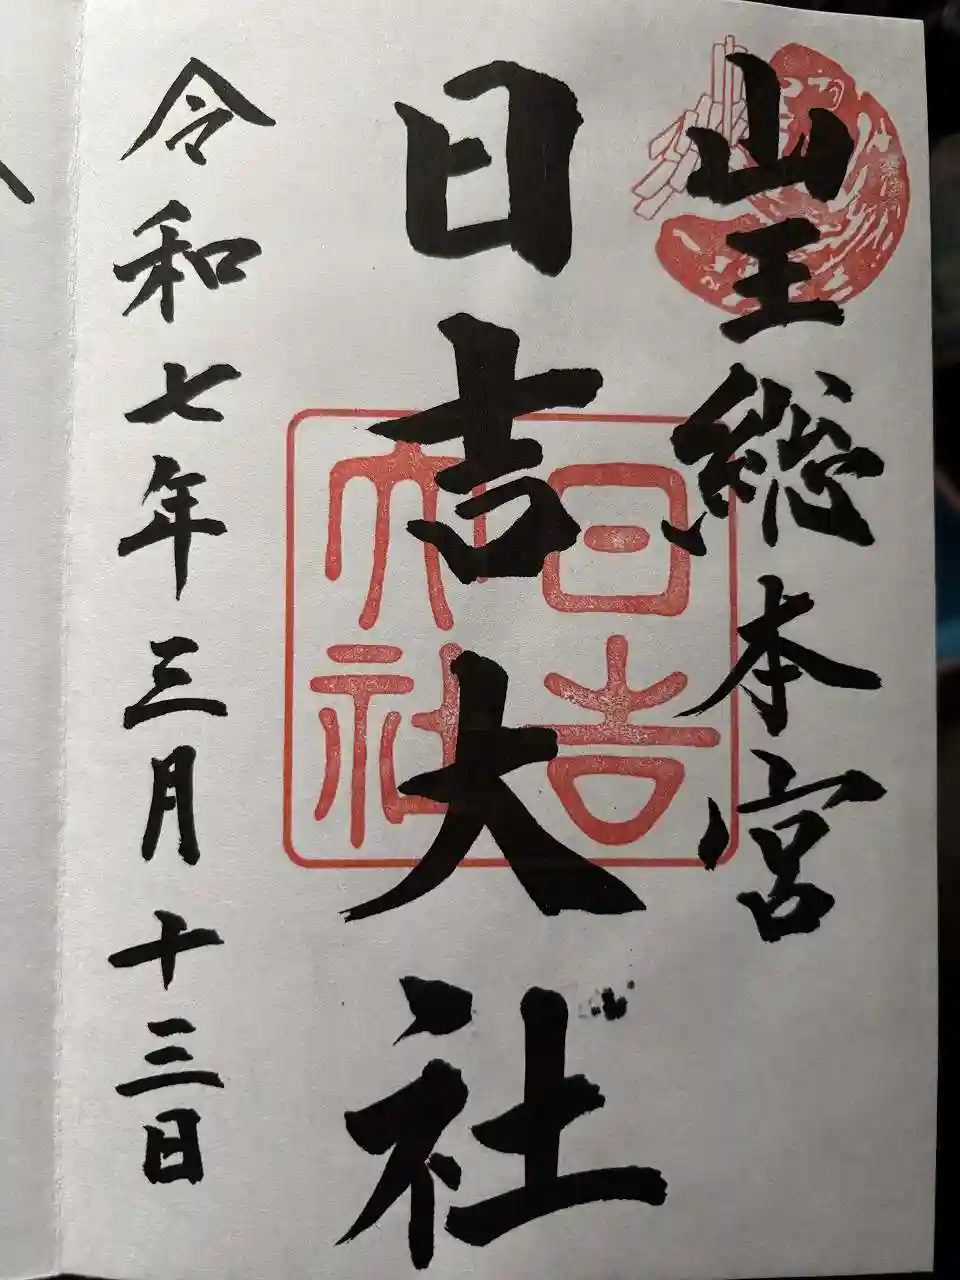 山王総本宮
日吉大社
日吉大社
令和七年三月十三日